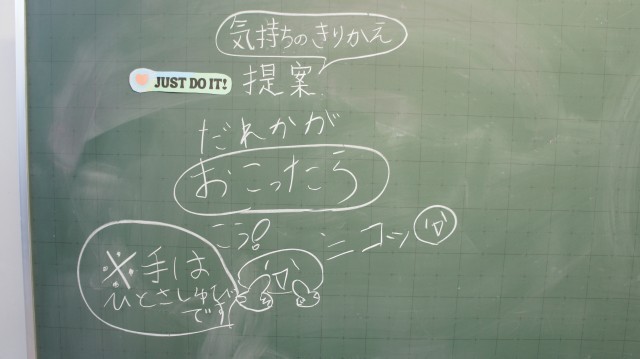 気持ちのきりかえ
JUST DO IT!
提案
だれかが
おこったら
こう!
ニコッ
※手は
ひとさしゅび
です